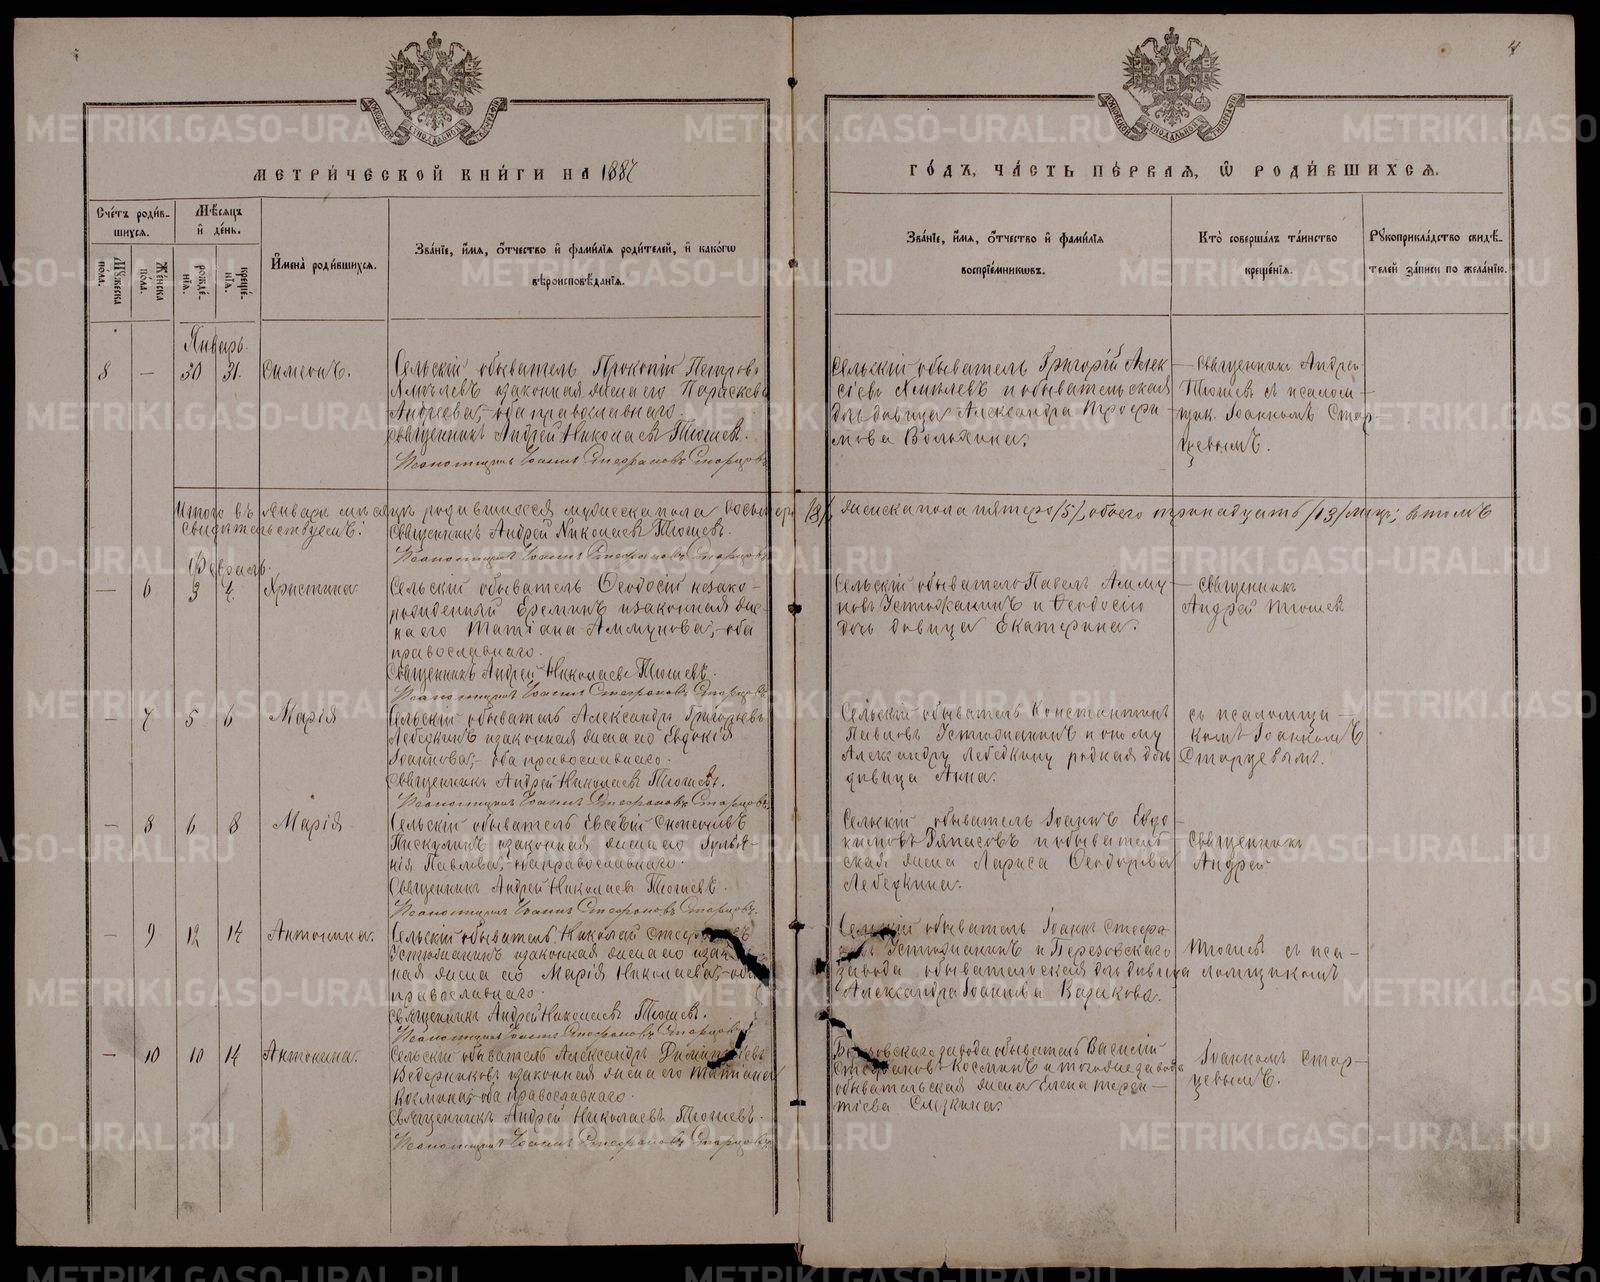 4
МЕТРИ́ЧЕСКОЙ КНИ́ГИ НА 1887
ГО́ДЪ, ЧА́СТЬ ПЕ́РВАЯ, Ѡ РОДИ́ВШИХСЯ.
Сче́тъ роди́в-
шихся.
Мѣ́сяцъ
и де́нь.
Му́жеска по́ла.
Же́нска по́ла.
рожде́-
нїя.
креще́-
нїя.
Имена̀ роди́вшихся.
Зва́нїе, и́мя, о́тчество и фами́лїя роди́телей, и како́гѡ
вѣроисповѣ́данїя.
Зва́нїе, и́мя, о́тчество и фами́лїя
воспрїе́мникѡвъ.
Кто̀ соверша́лъ та́инство
креще́нїя.
Рукоприкла́дство свидѣ́-
телей за́писи по жела́нїю.
Январь.
8 — 30 31. Симеонъ.
Сельскій обыватель Прокопій Петровъ
законная жена его Параскева
Андреева, оба православнаго.
Священникъ Андрей Николаевъ Тюшевъ.
Псаломщикъ Іоаннъ Стефановъ Старцевъ
Сельскій обыватель Григорій Алек
сѣевъ и обывательская
дочь девица Александра Трофи
мова
— Священник Андрей
Тюшев съ псалом-
щик. Іоанномъ Стар
цевымъ.
Итого въ Январѣ месяцѣ родившихся мужеска пола восьмеро /8/, женска пола пятеро /5/, обоего тринадцать /13/ въ томъ
свидетельствуемъ:
Священникъ Андрей Николаевъ Тюшевъ.
Псаломщикъ Іоаннъ Стефановъ Старцевъ
Февраль.
— 6 3 4. Христина
Сельскій обыватель Ѳеодосій незако-
норожденный Ереминъ и законная же-
на его Татіана, оба
православнаго.
Священникъ Андрей Николаевъ Тюшевъ.
Псаломщикъ Іоаннъ Стефановъ Старцевъ
Сельскій обыватель Павелъ
Устюжанинъ и Ѳеодосію
дочь девица Екатерина.
— Священникъ
Андрей Тюшев
— 7 5 6 Марія
Сельскій обыватель Александръ Григорьевъ
Лебедкинъ и законная жена его Евдокія
Іоаннова, оба православнаго.
Священникъ Андрей Николаевъ Тюшевъ.
Псаломщикъ Іоаннъ Стефановъ Старцевъ.
Сельскій обыватель Константинъ
Павловъ Устюжанинъ и оному
Александру Лебедкину родная дочь
девица Анна.
съ псаломщи-
комъ Іоанномъ
Старцевым.
— 8 6 8 Марія
Сельскій обыватель Евсевій Симеоновъ
Пискулинъ и законная жена его
Павлова, оба православнаго.
Священникъ Андрей Николаевъ Тюшевъ.
Псаломщикъ Іоаннъ Стефановъ Старцевъ.
Сельскій обыватель Іоаннъ Евдо-
кимовъ и обыватель
ская жена Лариса Ѳеодорова
Лебедкина.
Священникъ
Андрей
— 9 12 14 Антонина.
Сельскій обыватель Николай
Устюжанинъ и законная жена его закон
ная жена его Марія Николаева, оба
православнаго.
Священникъ Андрей Николаевъ Тюшевъ.
Псаломщикъ Іоаннъ Стефановъ Старцевъ
Сельскій обыватель Іоаннъ Стефа-
Устюжанинъ и Березовскаго
завода обывательская дочь девица
Александра Іоаннова Казакова.
Тюшев съ пса-
ломщикомъ
— 10 10 14 Антонина.
Сельскій обыватель Александръ Димитріевъ
Ведерниковъ и законная жена его Татіана
Козмина, оба православнаго.
Священникъ Андрей Николаевъ Тюшевъ.
Псаломщикъ Іоаннъ Стефановъ Старцевъ
Березовскаго завода обыватель Василій
Стефановъ Косминъ и тогоже завода
обывательская жена Елена Терен-
тіева
Іоанномъ Стар-
цевымъ.
METRIKI.GASO-URAL.RU